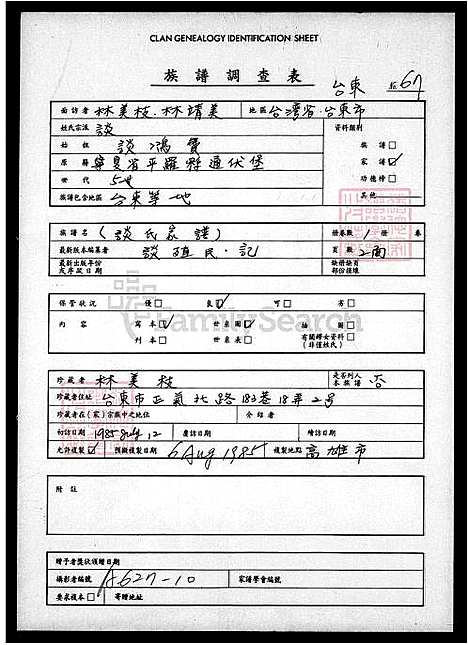 CLAN GENEALOGY IDENTIFICATION SHEET
族譜調查表
台東 67
面訪者 林美枝.林靖美 地區 台湾省.台東市
姓氏宗派 談 資料類別
始祖 談鴻賓 族譜□
原籍 寧夏省平羅縣通伏堡 家譜☑
世代 5世 功德榜□
族譜包含地區 台東等地 其他
族譜名 (談氏家譜) 冊卷數 1冊 卷
最新版本編纂者 談植民.記 頁數 2面
最新出版年份或序跋日期 缺冊缺頁部份接續
保管狀況 優□ 良☑ 可□ 劣□
內容 寫本☑ 世系圖☑ 插圖□
刊本□ 世系表□ 有關婦女資料□
(非僅姓氏)
珍藏者 林美枝 是否列入本族譜 否
珍藏者住址 台東市正氣北路183巷18弄2号
珍藏者在(家)宗族中之地位 介紹者
初訪日期 1985 July, 12 覆訪日期 續訪日期
允許複製☑ 預擬複製日期 6 Aug 1985 複製地點 高雄市
FamilySearch
附註
贈予者獎狀頒贈日期
攝影者編號 A627-10 家譜學會編號
要求複本□ 寄贈地址